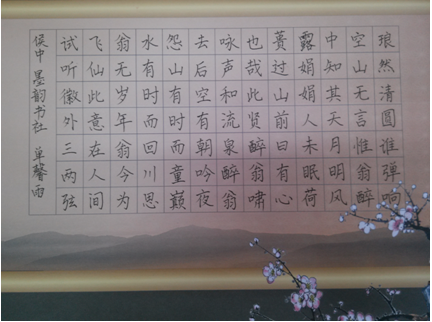 琅然清圆谁弹响
空山无言惟翁醉
中知其天月明风
露娟娟人未眠荷
蒉过山前曰有心
也哉此贤醉翁啸
咏声和流泉醉翁
去后空有朝吟夜
怨山有时而童巅
水有时而回川思
翁无岁年翁今为
飞仙此意在人间
试听徽外三两弦
侯中墨韵书社 单馨雨